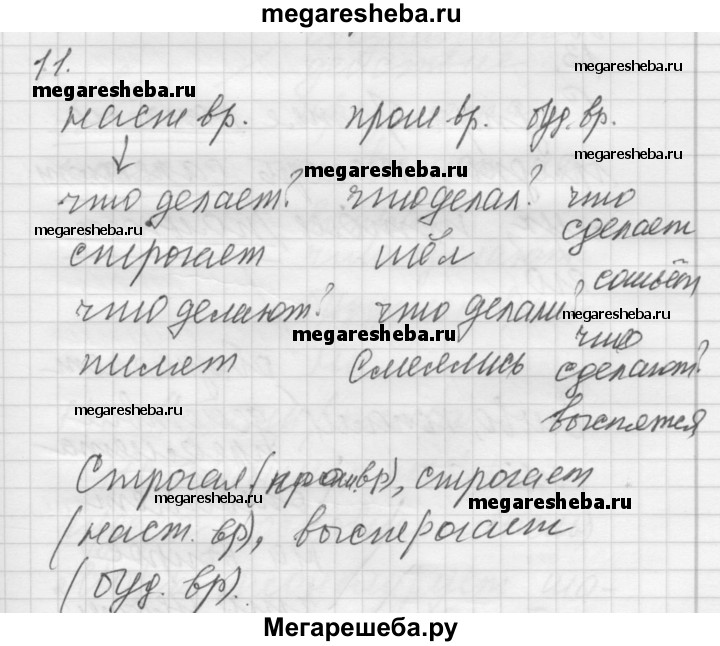 megaresheba.ru
11.
megaresheba.ru
megaresheba.ru
наст вр. прош вр. буд. вр.
megaresheba.ru
что делает? что делал? что сделает
megaresheba.ru
megaresheba.ru
строгает шёл сошьёт
что делают? что делали? что сделают?
megaresheba.ru
megaresheba.ru
пилят смеялись выспятся
megaresheba.ru
Строгал (прош.вр), строгает
megaresheba.ru
megaresheba.ru
(наст. вр), выстрогает
(буд. вр).
Мегарешеба.ру